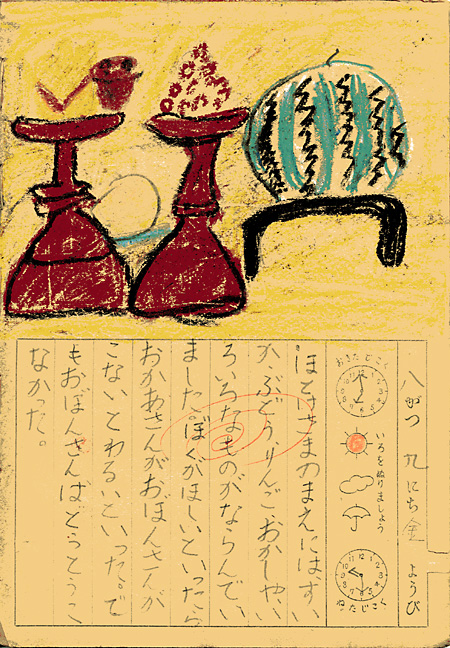 八がつ 九にち 金 ようび
おきたじこく
いろをぬりましょう
ねたじこく
ほとけさまのまえには、すい
か、ぶどう、りんご、おかしやい
ろいろなものがならんでい
ました。ぼくがほしいといったら
おかあさんがおぼんさんが
こないとわるいといった。で
もおぼんさんはどうとうこ
なかった。